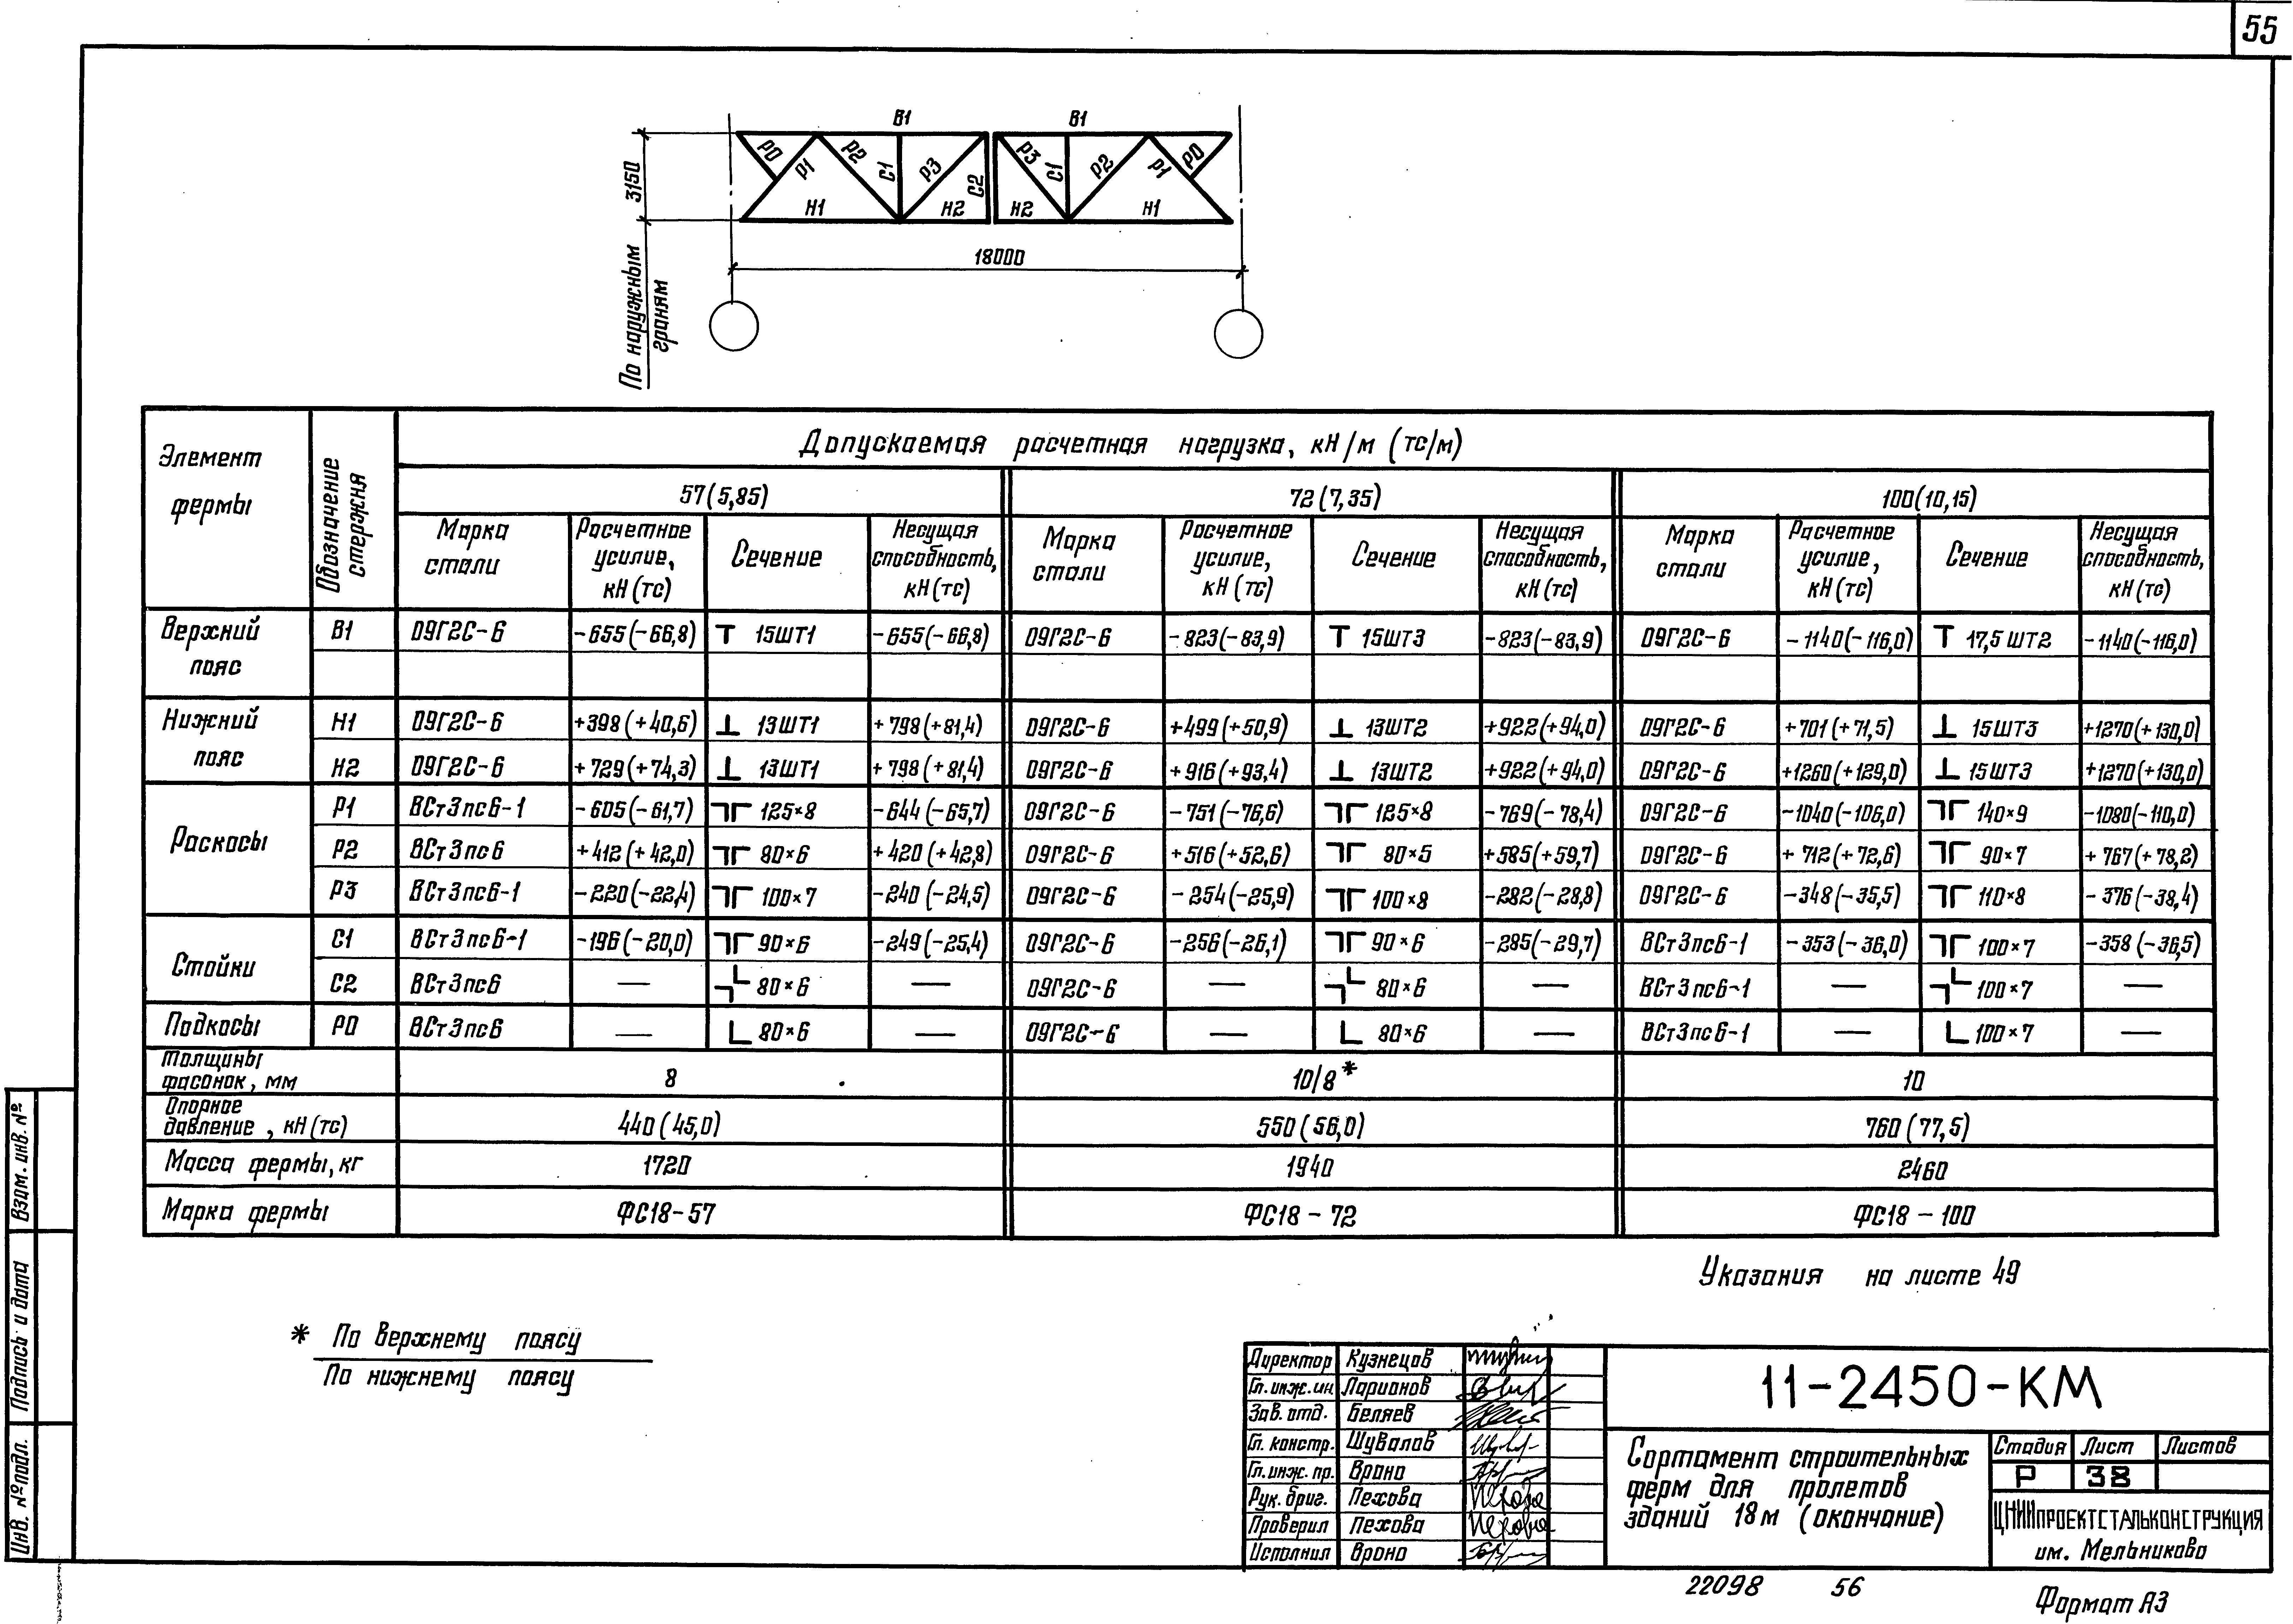 55
В1 В1
Р0 Р1 Р2 С1 Р3 С2 Р3 С1 Р2 Р1 Р0
Н1 Н2 Н2 Н1
3150
По наружным
граням
18000
Элемент фермы
Обозначение стержня
Допускаемая расчетная нагрузка, кН/м (тс/м)
57(5,85) 72(7,35) 100(10,15)
Марка стали Расчетное усилие, кН(тс) Сечение Несущая способность, кН(тс) Марка стали Расчетное усилие, кН(тс) Сечение Несущая способность, кН(тс) Марка стали Расчетное усилие, кН(тс) Сечение Несущая способность, кН(тс)
Верхний пояс В1 09Г2С-6 -655(-66,8) 15ШТ1 -655(-66,8) 09Г2С-6 -823(-83,9) 15ШТ3 -823(-83,9) 09Г2С-6 -1140(-116,0) 17,5ШТ2 -1140(-116,0)
Нижний пояс Н1 09Г2С-6 +398(+40,6) 13ШТ1 +798(+81,4) 09Г2С-6 +499(+50,9) 13ШТ2 +922(+94,0) 09Г2С-6 +701(+71,5) 15ШТ3 +1270(+130,0)
Н2 09Г2С-6 +729(+74,3) 13ШТ1 +798(+81,4) 09Г2С-6 +916(+93,4) 13ШТ2 +922(+94,0) 09Г2С-6 +1260(+129,0) 15ШТ3 +1270(+130,0)
Раскосы Р1 ВСт3пс6-1 -605(-61,7) 125×8 -644(-65,7) 09Г2С-6 -751(-76,6) 125×8 -769(-78,4) 09Г2С-6 -1040(-106,0) 140×9 -1080(-110,0)
Р2 ВСт3пс6 +412(+42,0) 80×6 +420(+42,8) 09Г2С-6 +516(+52,6) 80×5 +585(+59,7) 09Г2С-6 +712(+72,6) 90×7 +767(+78,2)
Р3 ВСт3пс6-1 -220(-22,4) 100×7 -240(-24,5) 09Г2С-6 -254(-25,9) 100×8 -282(-28,8) 09Г2С-6 -348(-35,5) 110×8 -376(-38,4)
Стойки С1 ВСт3пс6-1 -196(-20,0) 90×6 -249(-25,4) 09Г2С-6 -256(-26,1) 90×6 -285(-29,7) ВСт3пс6-1 -353(-36,0) 100×7 -358(-36,5)
С2 ВСт3пс6 — 80×6 — 09Г2С-6 — 80×6 — ВСт3пс6-1 — 100×7 —
Подкосы Р0 ВСт3пс6 — 80×6 — 09Г2С-6 — 80×6 — ВСт3пс6-1 — 100×7 —
Толщины фасонок, мм 8 10/8* 10
Опорное давление, кН(тс) 440(45,0) 550(56,0) 760(77,5)
Масса фермы, кг 1720 1940 2460
Марка фермы ФС18-57 ФС18-72 ФС18-100
Указания на листе 49
* По верхнему поясу
По нижнему поясу
Директор Кузнецов
Гл. инж. ин Ларионов
Зав. отд. Беляев
Гл. констр. Шувалов
Гл. инж. пр. Врано
Рук. бриг. Пехова
Проверил Пехова
Исполнил Врано
11-2450-КМ
Сортамент строительных
ферм для пролетов
зданий 18м (окончание)
Стадия Лист Листов
Р 38
ЦНИИпроектстальконструкция
им. Мельникова
22098 56
Формат А3
Взам. инв. №
Подпись и дата
Инв. № подл.